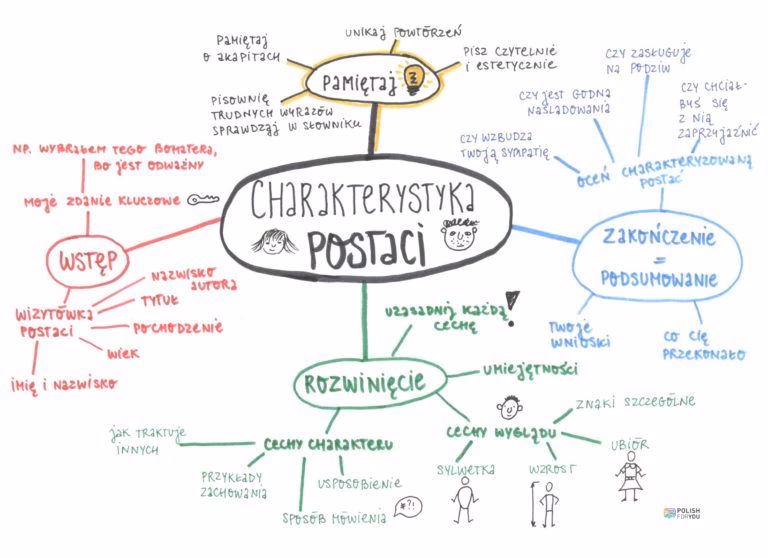 PAMIĘTAJ
O AKAPITACH
UNIKAJ POWTÓRZEŃ
PISZ CZYTELNIE
I ESTETYCZNIE
PAMIĘTAJ
PISOWNIĘ
TRUDNYCH WYRAZÓW
SPRAWDZAJ W SŁOWNIKU
CZY ZASŁUGUJE
NA PODZIW
CZY JEST GODNA
NAŚLADOWANIA
CZY CHCIAŁ-
BYŚ SIĘ
Z NIĄ
ZAPRZYJAŹNIĆ
CZY WZBUDZA
TWOJĄ SYMPATIĘ
OCEŃ CHARAKTERYZOWANĄ
POSTAĆ
NP. WYBRAŁEM TEGO BOHATERA,
BO JEST ODWAŻNY
MOJE ZDANIE KLUCZOWE
CHARAKTERYSTYKA
POSTACI
WSTĘP
ZAKOŃCZENIE
=
PODSUMOWANIE
NAZWISKO
AUTORA
TYTUŁ
WIZYTÓWKA
POSTACI
POCHODZENIE
WIEK
IMIĘ I NAZWISKO
TWOJE
WNIOSKI
CO CIĘ
PRZEKONAŁO
UZASADNIJ KAŻDĄ
CECHĘ !
ROZWINIĘCIE
UMIEJĘTNOŚCI
JAK TRAKTUJE
INNYCH
CECHY CHARAKTERU
CECHY WYGLĄDU
ZNAKI SZCZEGÓLNE
PRZYKŁADY
ZACHOWANIA
USPOSOBIENIE
SPOSÓB MÓWIENIA
#?!
SYLWETKA
WZROST
UBIÓR
POLISH
FOR YOU